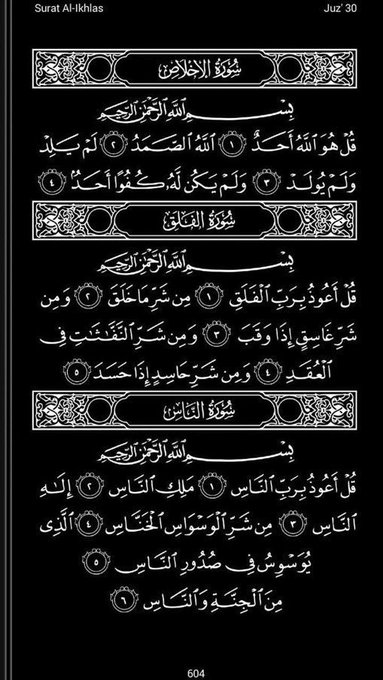 Surat Al-Ikhlas Juz' 30
سُورَةُ الإِخْلَاصِ
بِسْمِ ٱللَّهِ ٱلرَّحْمَٰنِ ٱلرَّحِيمِ
قُلْ هُوَ ٱللَّهُ أَحَدٌ ١ ٱللَّهُ ٱلصَّمَدُ ٢ لَمْ يَلِدْ
وَلَمْ يُولَدْ ٣ وَلَمْ يَكُن لَّهُۥ كُفُوًا أَحَدٌۢ ٤
سُورَةُ الفَلَقِ
بِسْمِ ٱللَّهِ ٱلرَّحْمَٰنِ ٱلرَّحِيمِ
قُلْ أَعُوذُ بِرَبِّ ٱلْفَلَقِ ١ مِن شَرِّ مَا خَلَقَ ٢ وَمِن
شَرِّ غَاسِقٍ إِذَا وَقَبَ ٣ وَمِن شَرِّ ٱلنَّفَّٰثَٰتِ فِى
ٱلْعُقَدِ ٤ وَمِن شَرِّ حَاسِدٍ إِذَا حَسَدَ ٥
سُورَةُ النَّاسِ
بِسْمِ ٱللَّهِ ٱلرَّحْمَٰنِ ٱلرَّحِيمِ
قُلْ أَعُوذُ بِرَبِّ ٱلنَّاسِ ١ مَلِكِ ٱلنَّاسِ ٢ إِلَٰهِ
ٱلنَّاسِ ٣ مِن شَرِّ ٱلْوَسْوَاسِ ٱلْخَنَّاسِ ٤ ٱلَّذِى
يُوَسْوِسُ فِى صُدُورِ ٱلنَّاسِ ٥
مِنَ ٱلْجِنَّةِ وَٱلنَّاسِ ٦
604